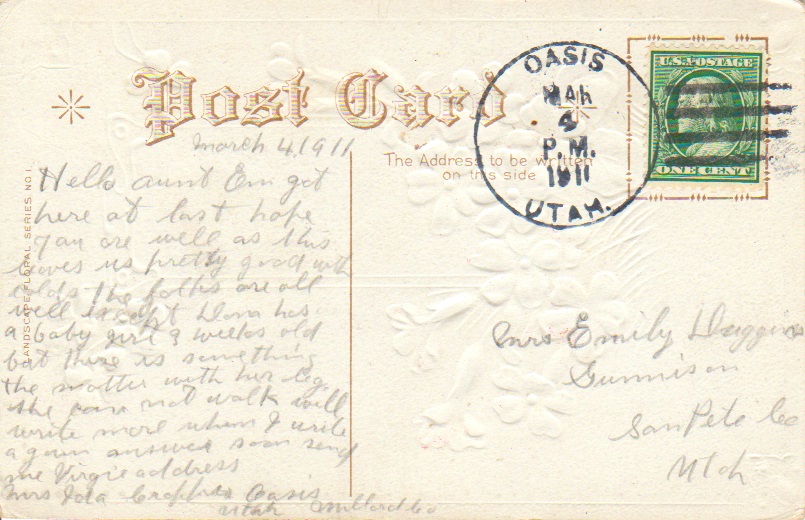 Post Card
OASIS
MAR
4
P.M.
1911
UTAH.
U.S. POSTAGE
ONE CENT
The Address to be written
on this side
LANDSCAPE FLORAL SERIES NO 1.
March 4, 1911
Hello aunt Em got
here at last hope
you are well as this
leaves us pretty good with
colds the folks are all
well except Dora has
a baby girl 3 weeks old
but there is something
the matter with her leg
she can not walk will
write more when I write
a gain answer soon send
me Virgie address
Mrs Ida Oasis
Utah Millard Co
Mrs Emily Duggins
Gunnison
SanPete Co
Utah